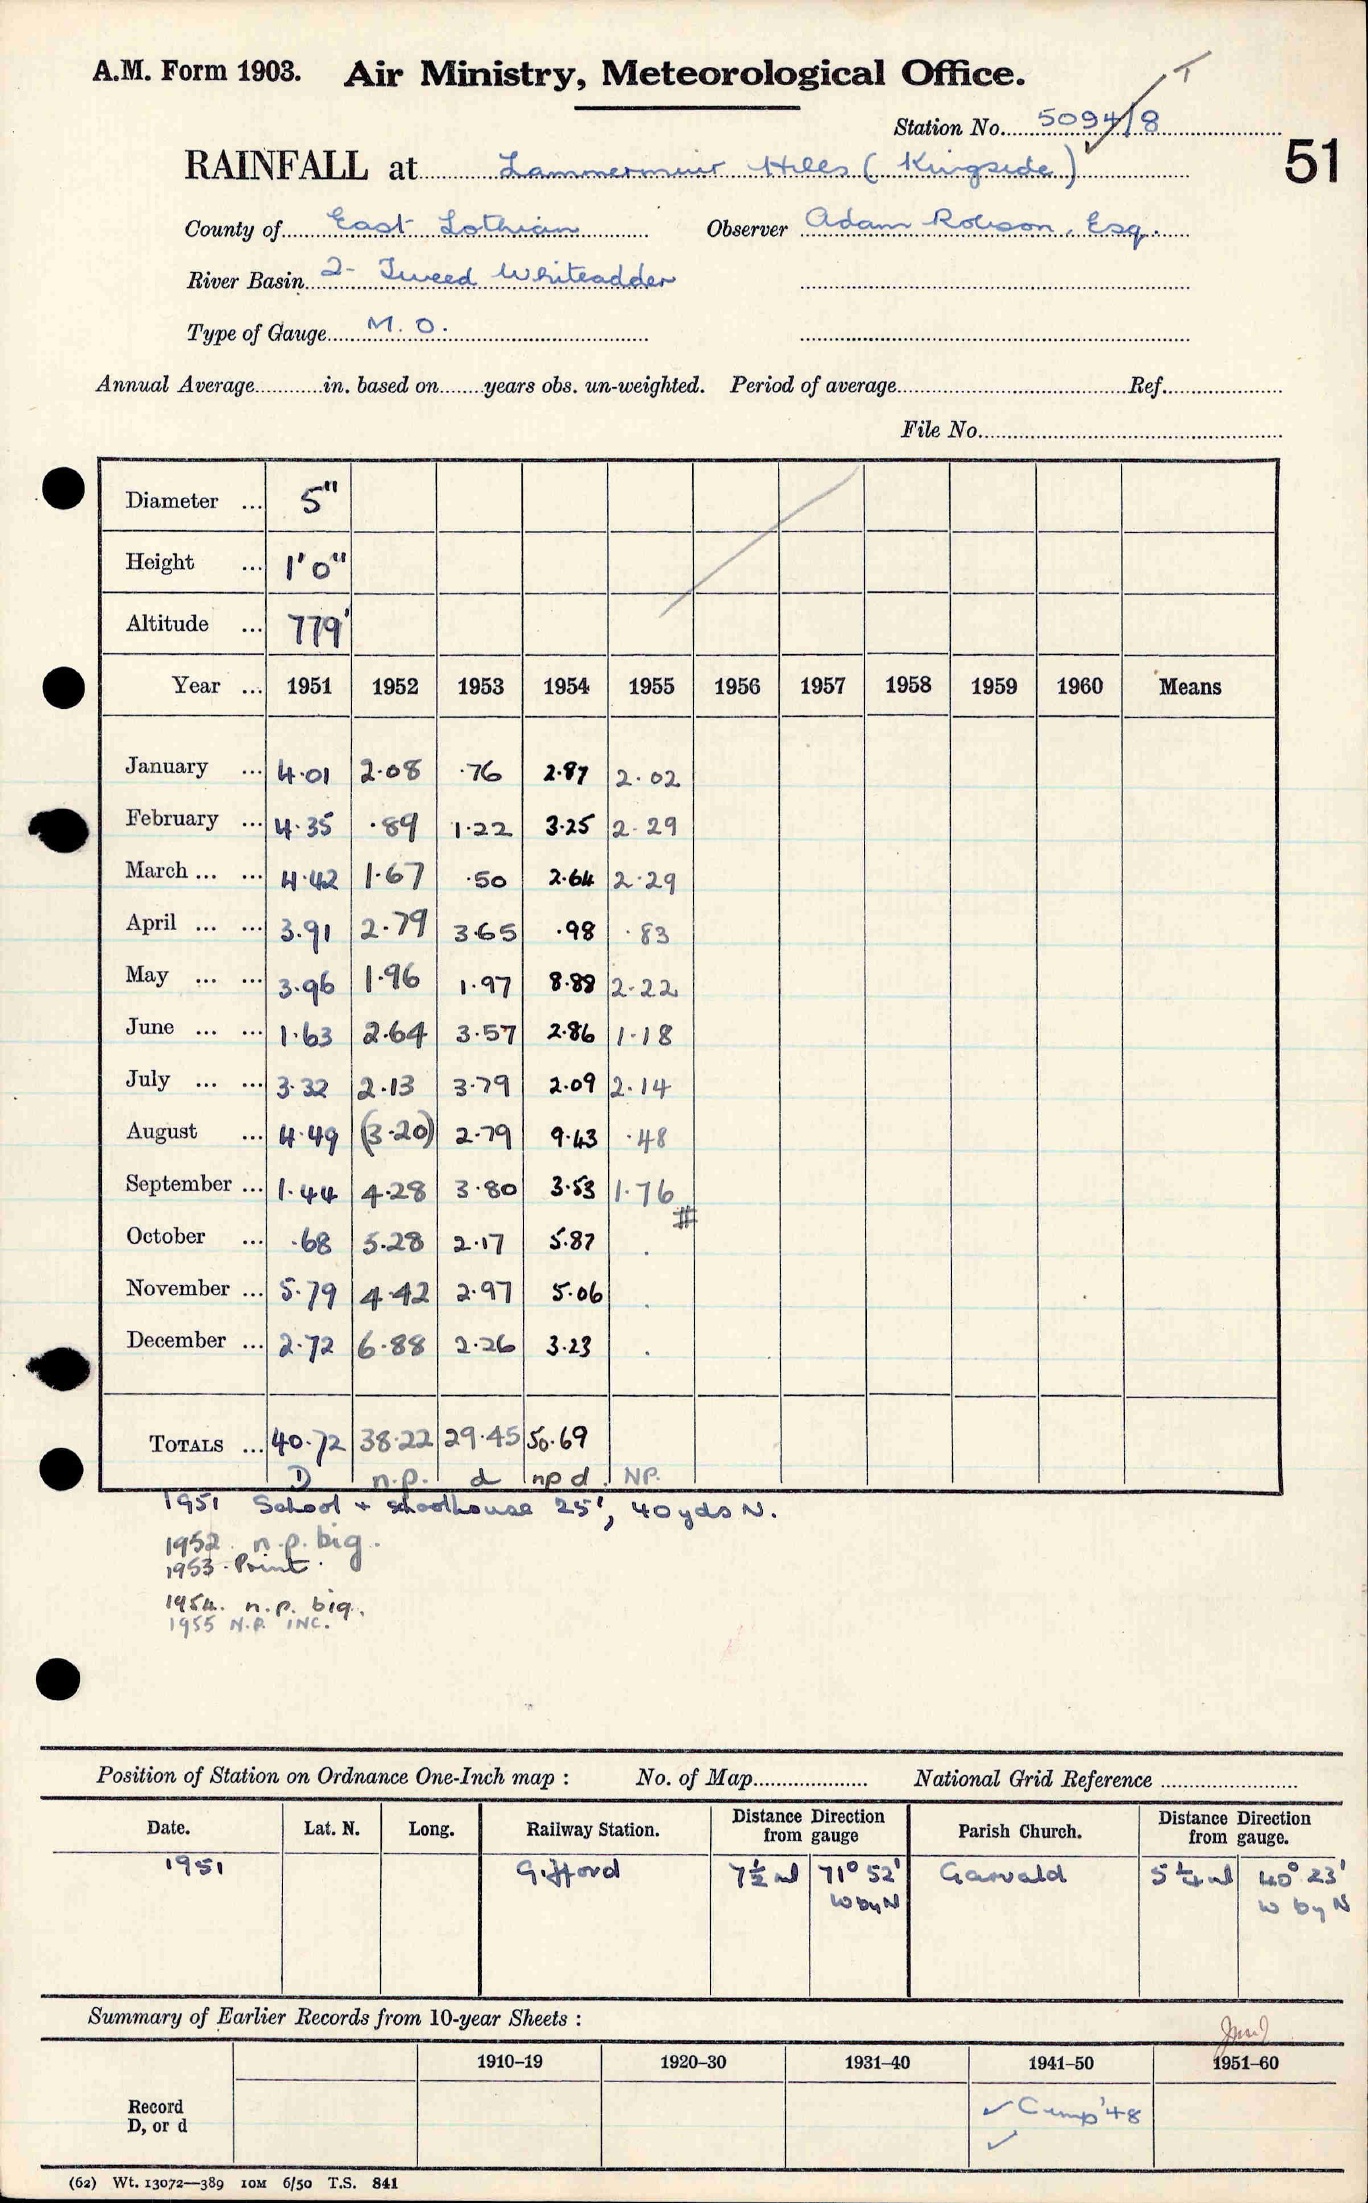 A.M. Form 1903. Air Ministry, Meteorological Office.
T
Station No. 5094/8
51
RAINFALL at Lammermuir Hills (Kingside)
County of East Lothian Observer Adam Robson, Esq.
River Basin 2- Tweed Whiteadder
Type of Gauge M.O.
Annual Average in. based on years obs. un-weighted. Period of average Ref.
File No.
Diameter ... 5"
Height ... 1'0"
Altitude ... 779'
Year ... 1951 1952 1953 1954 1955 1956 1957 1958 1959 1960 Means
January ... 4.01 2.08 .76 2.87 2.02
February ... 4.35 .89 1.22 3.25 2.29
March ... ... 4.42 1.67 .50 2.64 2.29
April ... ... 3.91 2.79 3.65 .98 .83
May ... ... 3.96 1.96 1.97 8.88 2.22
June ... ... 1.63 2.64 3.57 2.86 1.18
July ... ... 3.32 2.13 3.79 2.09 2.14
August ... 4.49 (3.20) 2.79 9.43 .48
September ... 1.44 4.28 3.80 3.53 1.76
#
October ... .68 5.28 2.17 5.87 .
November ... 5.79 4.42 2.97 5.06 .
December ... 2.72 6.88 2.26 3.23 .
TOTALS ... 40.72 38.22 29.45 50.69
D n.p. d np d. NP.
1951 School + schoolhouse 25', 40yds N.
1952. n.p. big.
1953. Print.
1954. n.p. big.
1955 N.P. INC.
Position of Station on Ordnance One-Inch map : No. of Map National Grid Reference
Date. Lat. N. Long. Railway Station. Distance Direction from gauge Parish Church. Distance Direction from gauge.
1951 Gifford 7½ m 71° 52' W by N Garvald 5¼ m 40° 23' W by N
Summary of Earlier Records from 10-year Sheets :
1910–19 1920–30 1931–40 1941–50 1951–60
Record
D, or d
✓ Cump '48
✓
(62) Wt. 13072—389 10M 6/50 T.S. 841